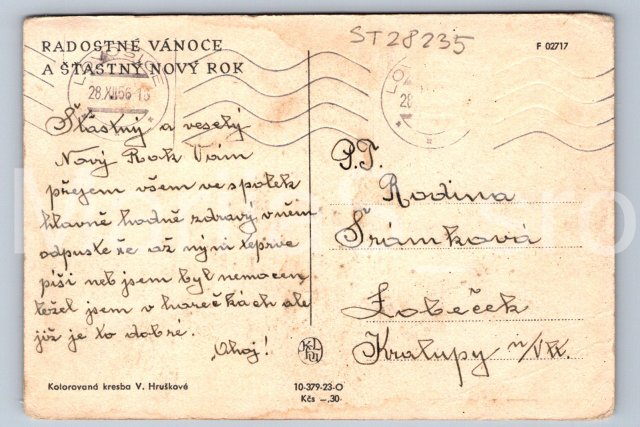 RADOSTNÉ VÁNOCE
A ŠŤASTNÝ NOVÝ ROK
ST28235
F 02717
28.XII.56-18
28
Šťastný a veselý
Nový Rok Vám
přejem všem ve spolek
hlavně hodně zdravý, v něm
odpuste že až nýní teprve
píši neb jsem byl nemocen,
ležel jsem v horečkách ale
již je to dobré.
Ahoj!
P.T.
Rodina
Šrámková
Lobeček
Kralupy n/Vlt.
Kolorovaná kresba V. Hruškové
10-379-23-O
Kčs –.30